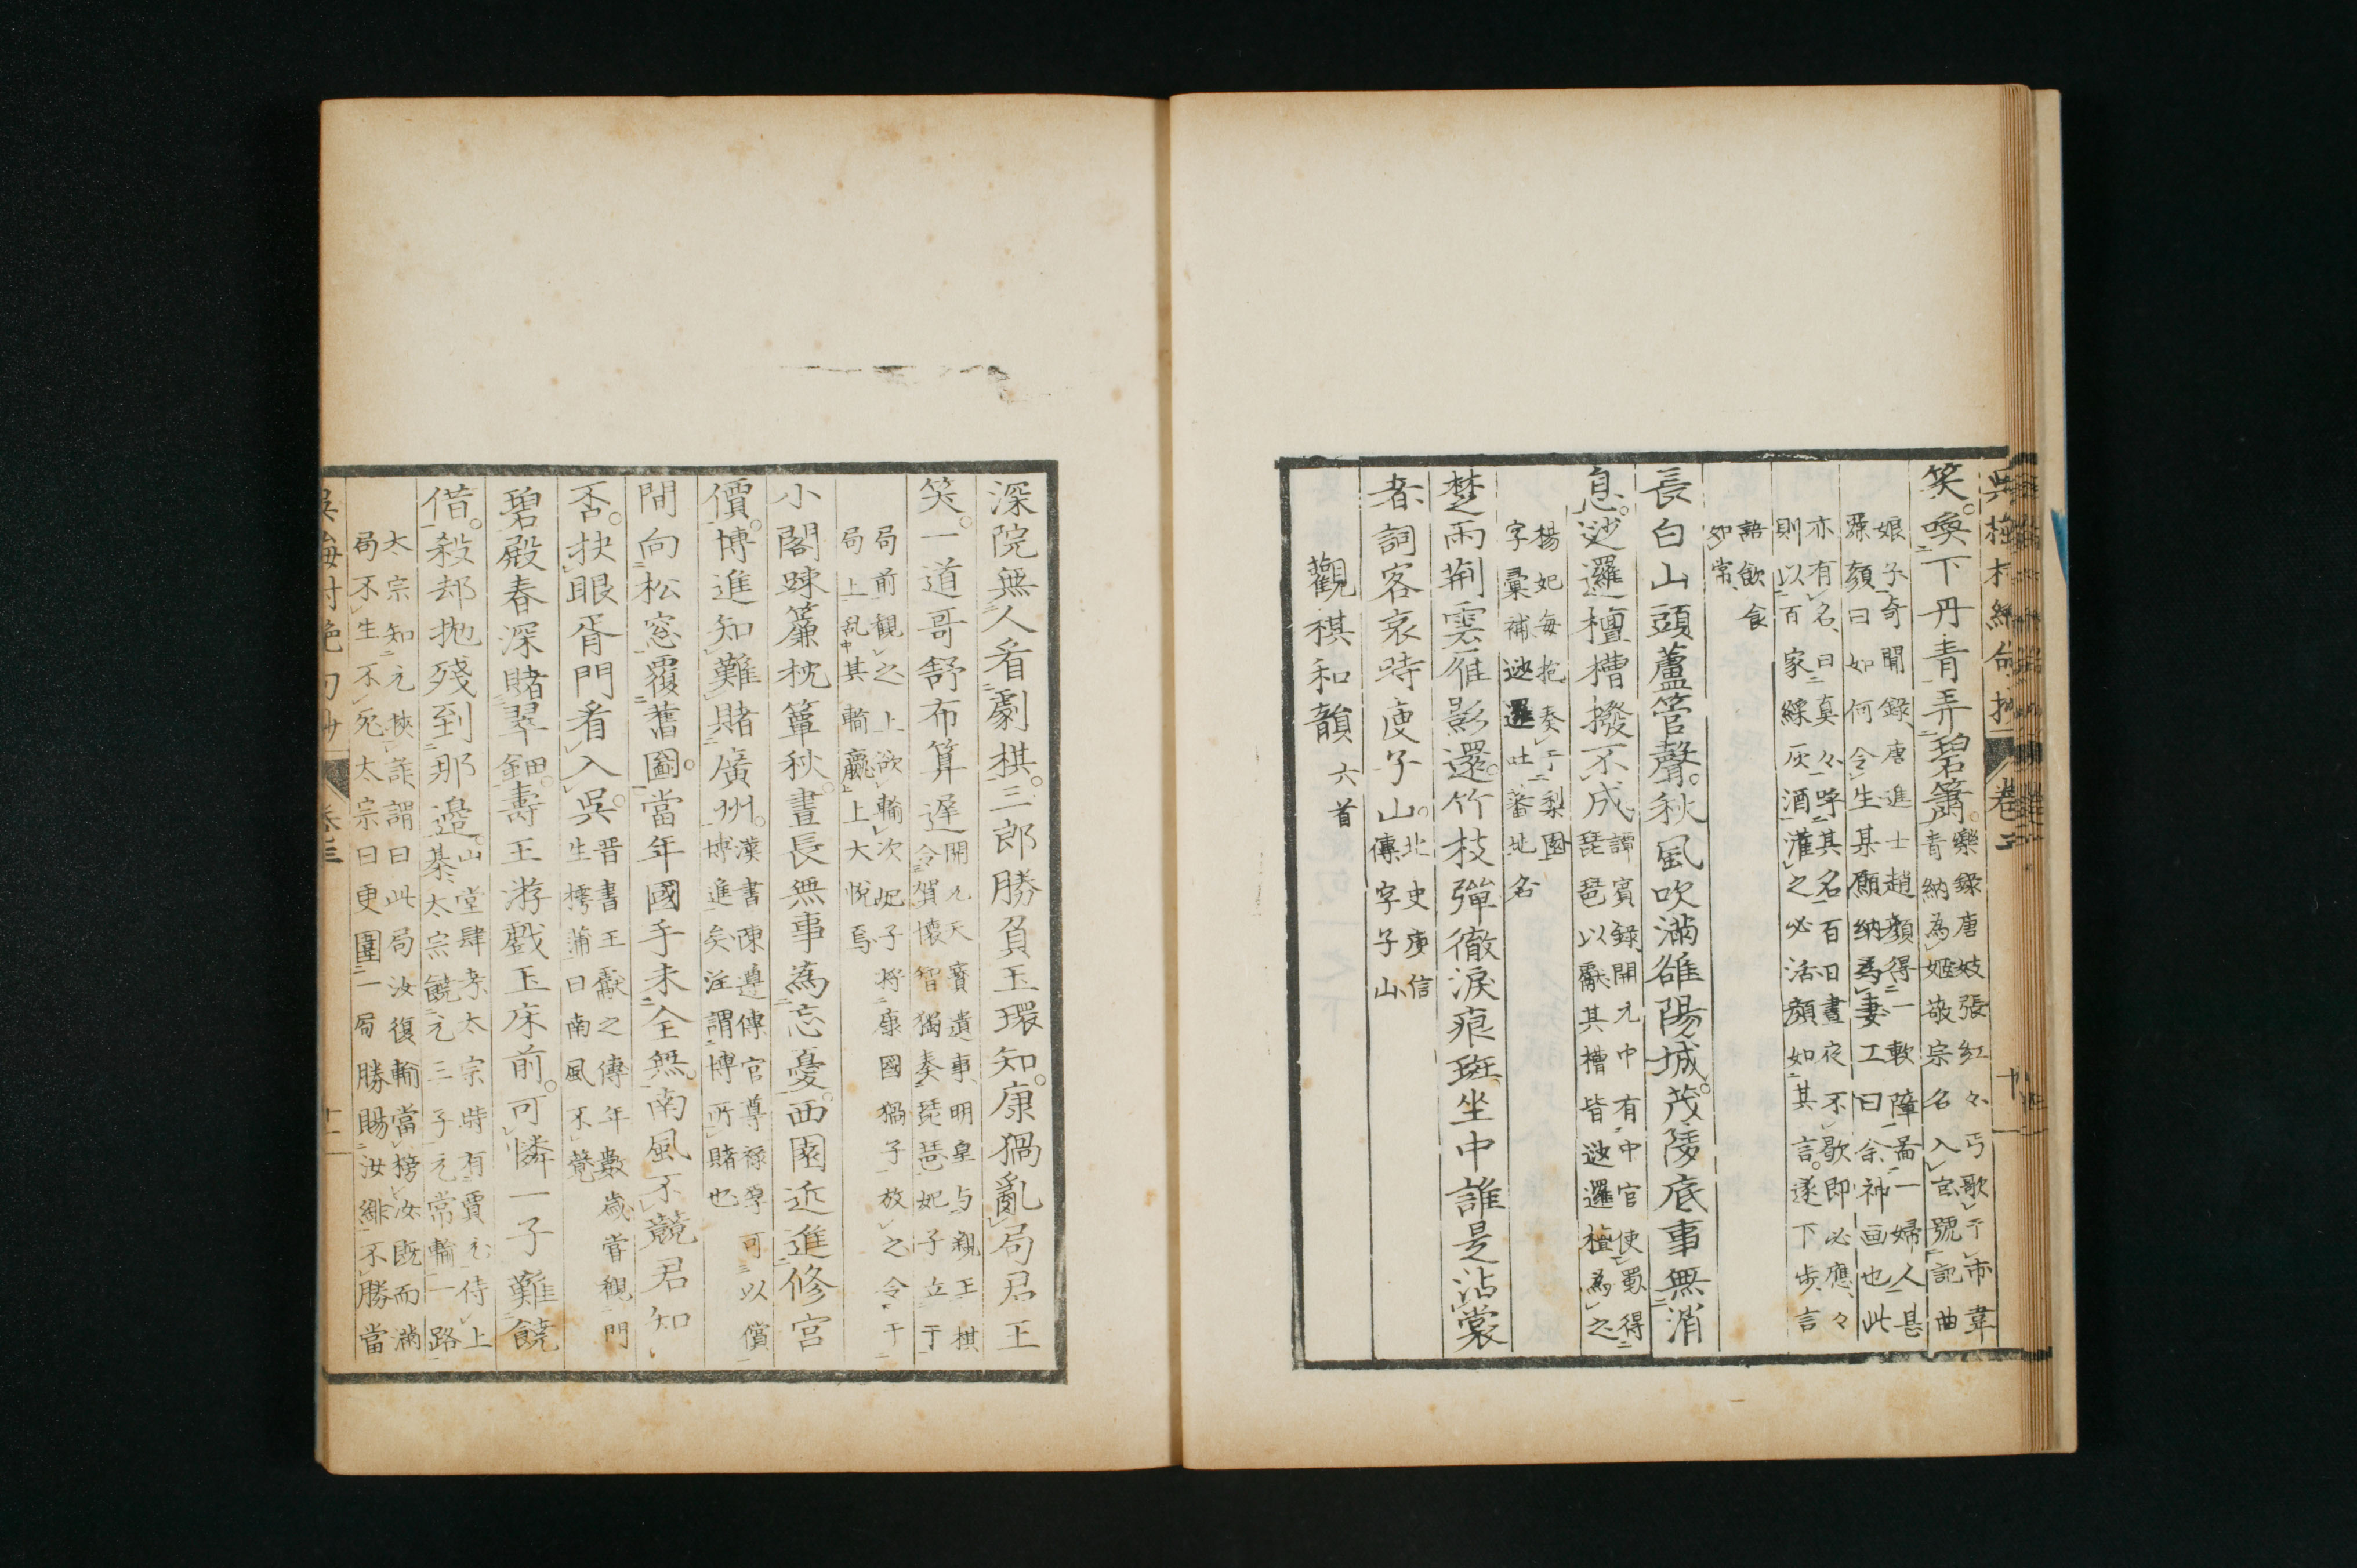 笑。喚下丹青弄碧簫。樂錄唐妓張紅々丐歌于市韋
青納為姬敬宗名入宮號記曲
娘子奇聞錄唐進士趙顏得一軟障畵一婦人甚
麗顏曰如何令生某願納為妻工曰余神画也此
亦有名曰真々呼其名百日晝夜不歇即必應々
則以百家綵灰酒灌之必活顏如其言遂下步言
語飲食
如常
長白山頭蘆管聲。秋風吹滿雒陽城。茂陵底事無消
息。逤邏檀槽撥不成 譚賓錄開元中有中官使蜀得
琵琶以獻其槽皆逤邏檀為之
楊妃每抱奏于梨園
字彙補逤邏吐蕃地名
楚雨荊雲雁影還。竹枝彈徹淚痕斑。坐中誰是沾裳
者。詞客哀時庾子山。北史庾信
傳字子山
觀棋和韻 六首
深院無人看劇棋。三郎勝負玉環知。康猧亂局君王
笑。一道哥舒布算遲 開元天寶遺事明皇与親王棋
令賀懷智獨奏琵琶妃子立于
局前觀之上欲輸次妃子将康國猧子放之令于
局上乱其輸贏上大悅焉
小閣踈簾枕簟秋。晝長無事為忘憂。西園近進修宮
價。博進知難賭廣州。漢書陳遵傳官尊祿厚可以償
博進矣注謂博所賭也
間向松窓覆舊圖。當年國手未全無。南風不競君知
否。抉眼胥門看入吳。晋書王獻之傳年數歲嘗觀門
生摴蒲曰南風不競
碧殿春深賭翠鈿。壽王游戲玉床前。可憐一子難饒
借。殺却拋殘到那邊。山堂肆考太宗時有賈元侍上
棊太宗饒元三子元常輸一路
太宗知元挾詐謂曰此局汝復輸當榜汝既而滿
局不生不死太宗曰更圍一局勝賜汝緋不勝當